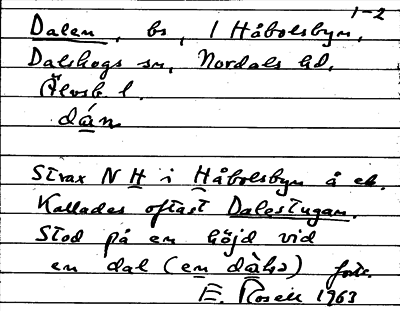 1-2
Dalen, bs, 1 Håbolsbyn,
Dalskogs sn, Nordals hd,
Älvsb. l.
dán
Strax N H i Håbolsbyn å ek.
Kallades oftast Dalestugan.
Stod på en höjd vid
en dal (en dàl)
E. Rosell 1963